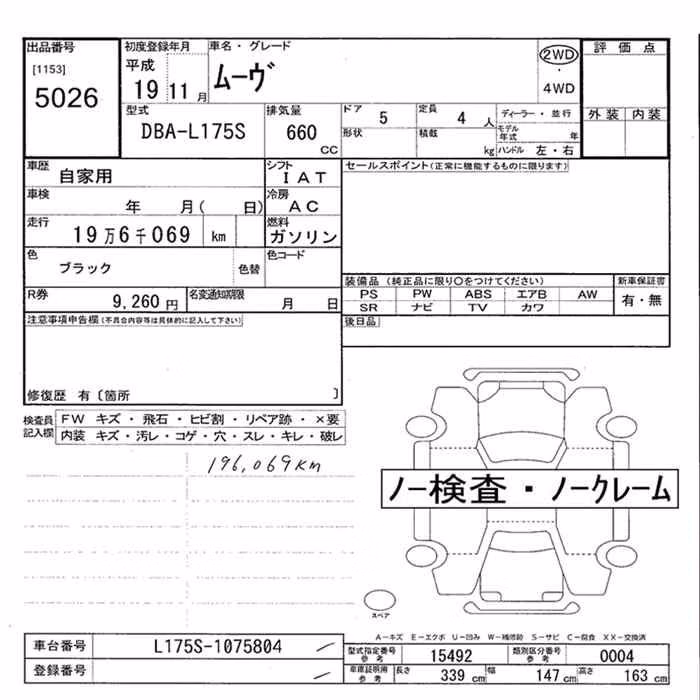 出品番号
[1153]
5026
初度登録年月
平成
19 11 月
車名・グレード
ムーヴ
2WD
・
4WD
評 価 点
外 装 内 装
型式
DBA-L175S
排気量
660
CC
ドア 5
定員 4 人
ディーラー・並行
形状
積載 kg
モデル年式 年
ハンドル 左・右
車歴
自家用
シフト
I A T
セールスポイント(正常に機能するものに限ります)
車検
年 月( 日)
冷房
A C
走行
19 万 6 千 069 km
燃料
ガソリン
色
ブラック
色替
色コード
装備品 (純正品に限り○をつけてください)
新車保証書
PS PW ABS エアB AW
SR ナビ TV カワ
有・無
R券
9,260 円
名変通知期限
月 日
後日品
注意事項申告欄(不具合内容等は具体的に記入して下さい)
修復歴 有〔箇所 〕
検査員記入欄
FW キズ ・ 飛石 ・ ヒビ割 ・ リペア跡 ・ ×要
内装 キズ・汚レ・コゲ・穴・スレ・キレ・破レ
196,069KM
ノー検査・ノークレーム
スペア
A－キズ E－エクボ U－凹み W－補修跡 S－サビ C－腐食 XX－交換済
車台番号 L175S-1075804
登録番号
型式指定番号 参考 15492
類別区分番号 参考 0004
車庫証明用 参考 長さ 339 cm 幅 147 cm 高さ 163 cm